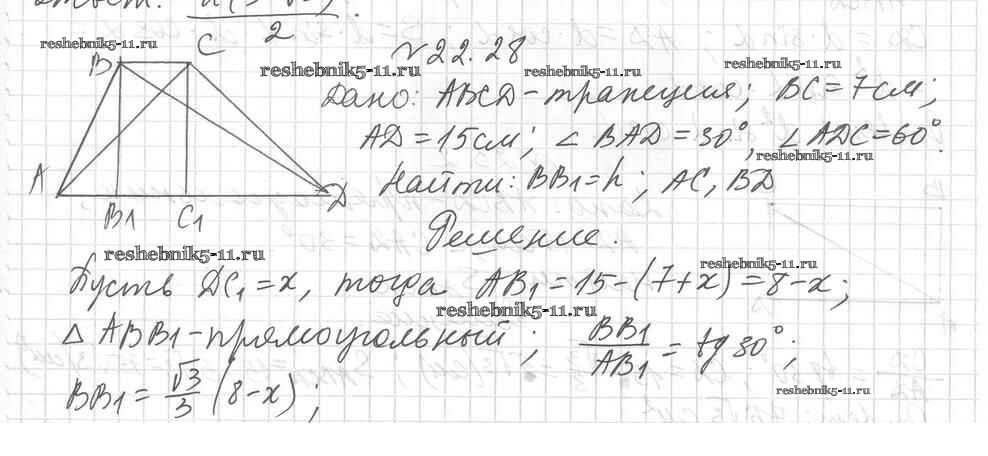 2
reshebnik5-11.ru
C
№22.28
B
reshebnik5-11.ru
reshebnik5-11.ru
reshebnik5-11.ru
Дано: ABCD-трапеция; BC=7см;
AD=15см; ∠BAD=30°, ∠ADC=60°.
reshebnik5-11.ru
A
D
Найти: BB1=h; AC, BD
B1 C1
Решение.
reshebnik5-11.ru
reshebnik5-11.ru
Пусть DC1=x, тогда AB1=15-(7+x)=8-x;
reshebnik5-11.ru
△ABB1-прямоугольный; BB1/AB1=tg 30°;
reshebnik5-11.ru
BB1=√3/3(8-x);